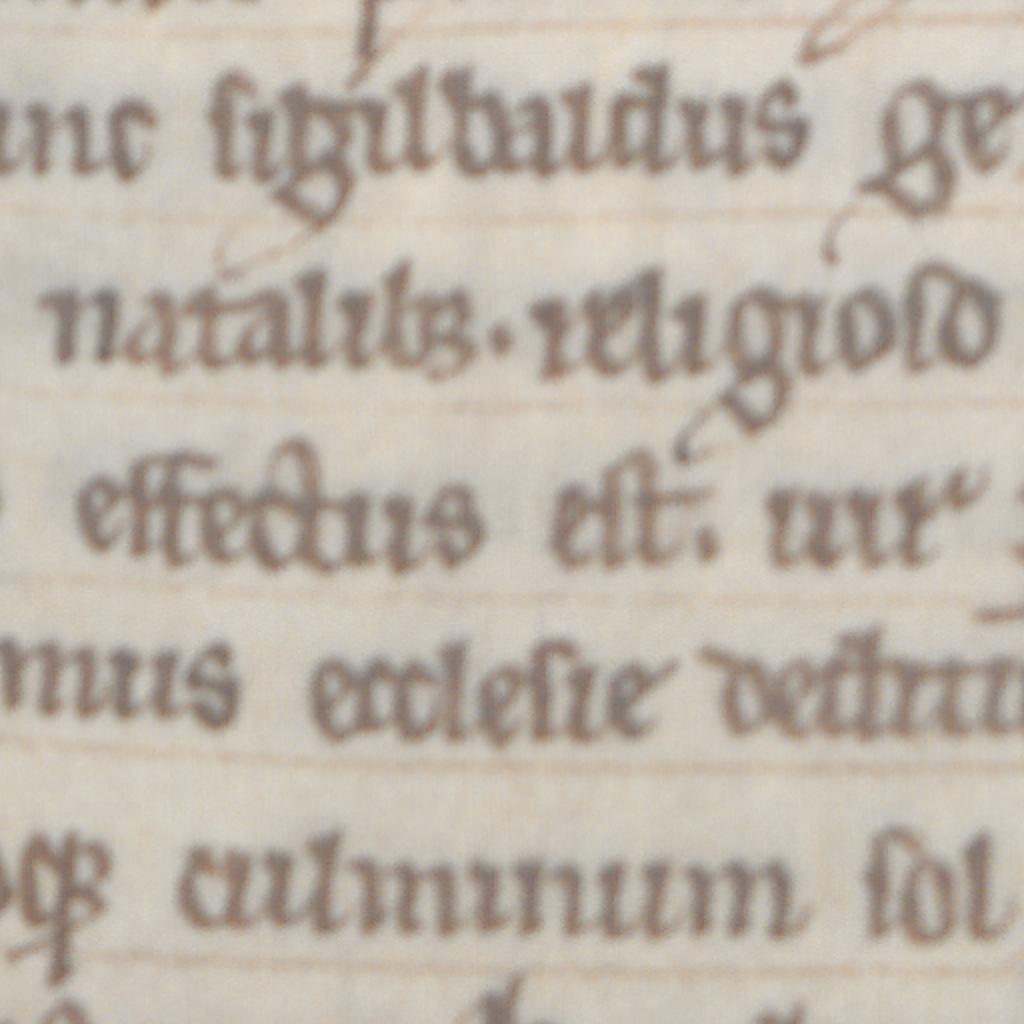 unc sigilbaldus ge
natalibꝫ · religioso
effectus est. uir
mus ecclesie
qꝫ culminum sol